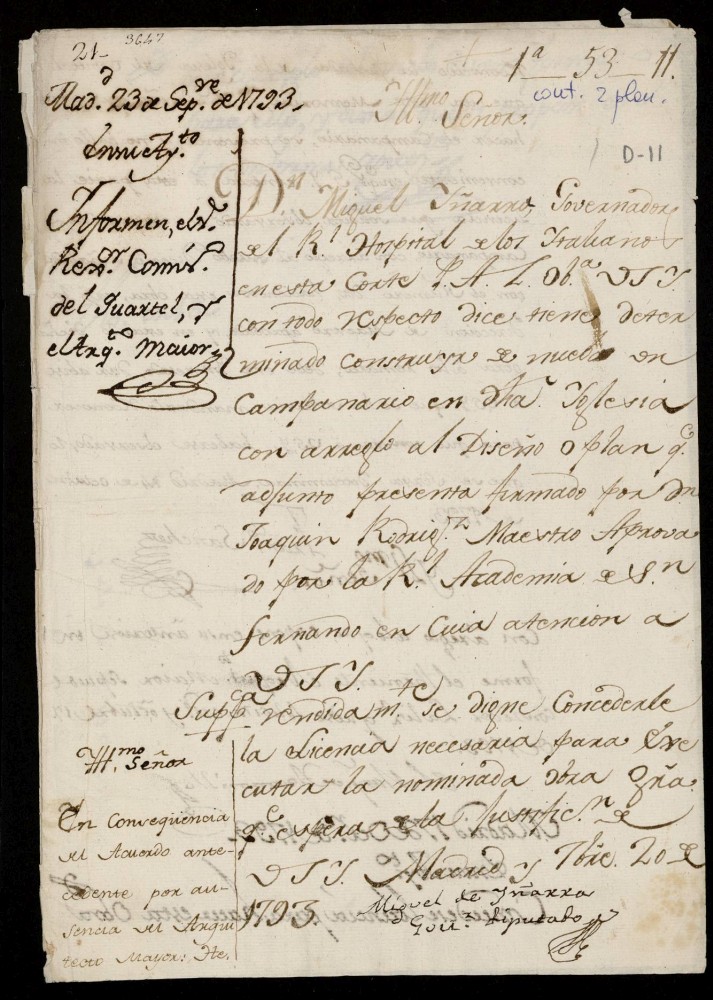 21_ 3647
1ª__53__11.
cont. 2 plan.
D-11
Mad.d 23 de Sep.re de 1793.
En su Ay.to
Informen, el s.r
Rexᵒʳ Comisº
del Quartel, y
el Arq.to Maior
Illmo
Señor.
D.n Miguel Yñarra, Governador
del R.l Hospital de los Italianos
en esta Corte P. A. L. Ob.a de V S Y.
con todo respecto dice tiene deter
minado construyr de nuebo un
Campanario en dha. Yglesia
con arreglo al Diseño o plan q.e
adjunto presenta firmado por dn.
Joaquin Rodrig.z Maestro Aprova
do por la R.l Academia de S.n
Fernando en Cuia atencion a
V S Y.
Supp.ca rendidam.te se digne Concederle
la Licencia necesaria para Exe
cutar la nominada obra Grã.
q.e espera de la Justific.n de
V S Y. Madrid y 7bre. 20 de
1793.
Miguel de Yñarra
Diputado
Ill.mo Señor
En Consequencia
del Acuerdo ante-
cedente por au-
sencia del Arqui
tecto Mayor: He.